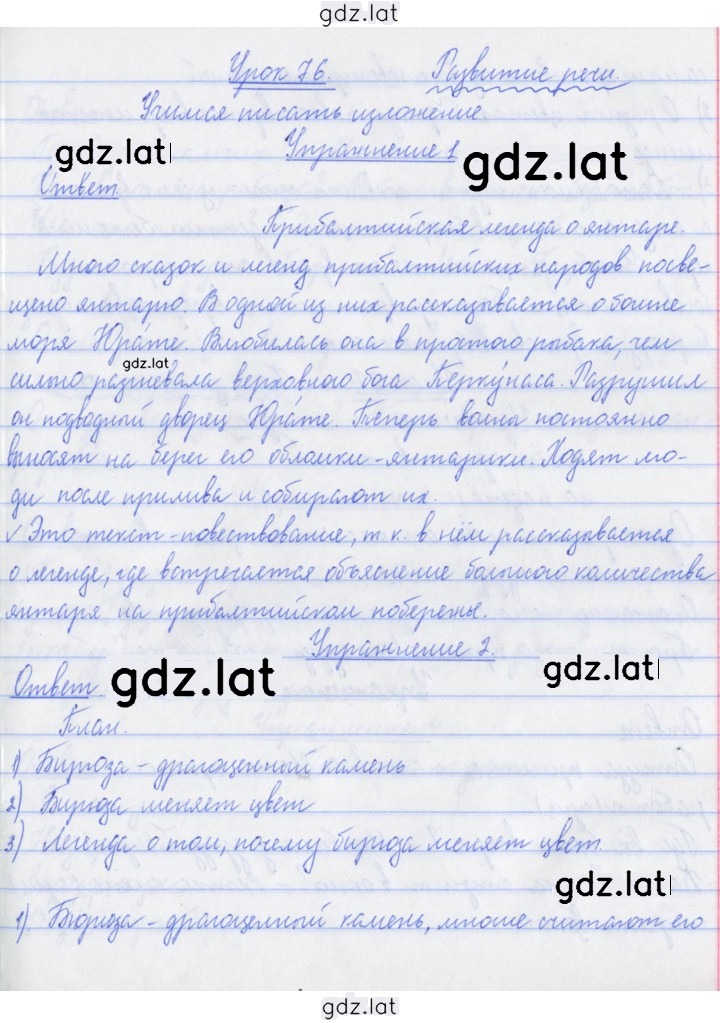 gdz.lat
Урок 76. Развитие речи.
Учимся писать изложение
gdz.lat
Упражнение 1
gdz.lat
Ответ
Прибалтийская легенда о янтаре.
Много сказок и легенд прибалтийских народов посве-
щено янтарю. В одной из них рассказывается о богине
моря Юра́те. Влюбилась она в простого рыбака, чем
gdz.lat
сильно разгневала верховного бога Перку́наса. Разрушил
он подводный дворец Юра́те. Теперь волны постоянно
выносят на берег его обломки - янтарики. Ходят лю-
ди после прилива и собирают их.
✓ Это текст - повествование, т к. в нём рассказывается
о легенде, где встречается объяснение большого количества
янтаря на прибалтийском побережье.
Упражнение 2.
gdz.lat
gdz.lat
Ответ
План.
1) Бирюза - драгоценный камень
2) Бирюза меняет цвет
3) Легенда о том, почему бирюза меняет цвет.
gdz.lat
1) Бирюза - драгоценный камень, многие считают его
gdz.lat